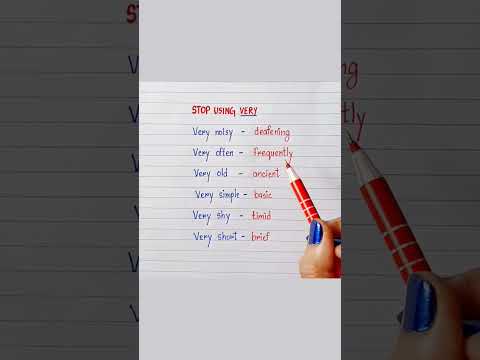 STOP USING VERY
Very noisy - deafening
Very often - frequently
Very old - ancient
Very simple - basic
Very shy - timid
Very short - brief